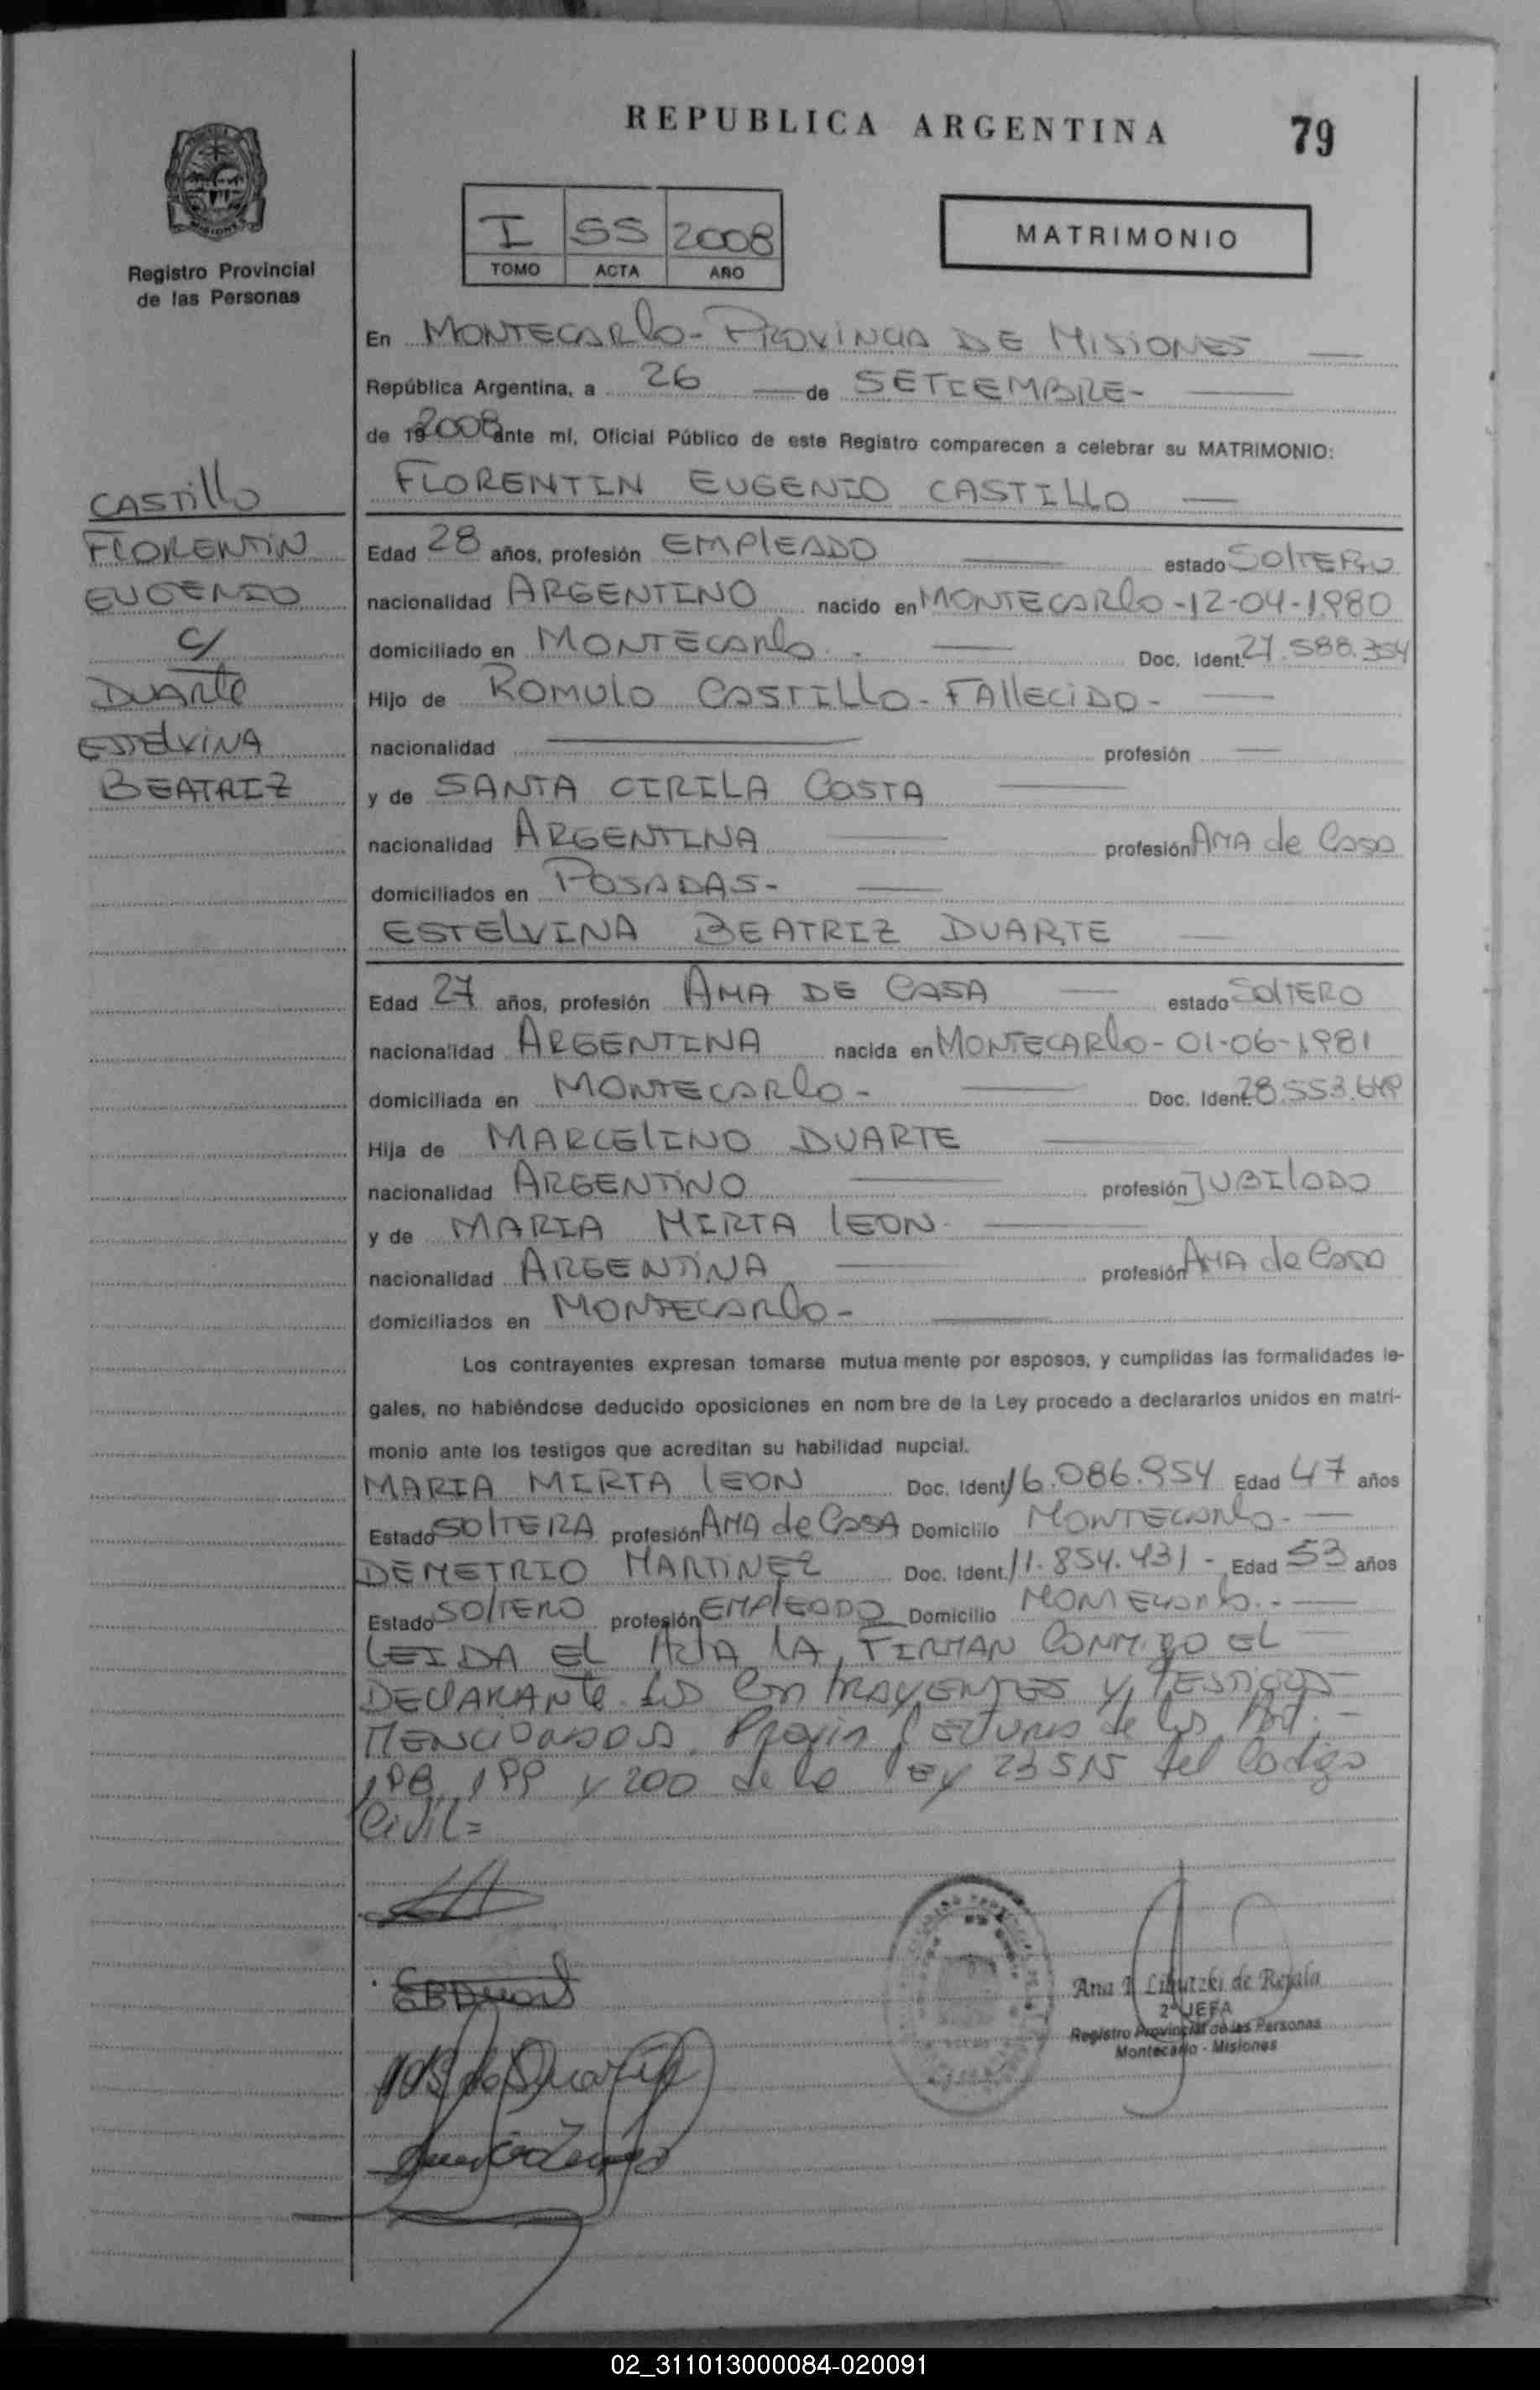 REPUBLICA ARGENTINA 79
I 55 2008
TOMO ACTA AÑO
MATRIMONIO
Registro Provincial
de las Personas
En MONTECARLO - PROVINCIA DE MISIONES
República Argentina, a 26 de SETIEMBRE-
de 19 2008 ante mí, Oficial Público de este Registro comparecen a celebrar su MATRIMONIO:
FLORENTIN EUGENIO CASTILLO
CASTILLO
FLORENTIN
EUGENIO
C/
DUARTE
ESTELVINA
BEATRIZ
Edad 28 años, profesión EMPLEADO estado SOLTERO
nacionalidad ARGENTINO nacido en MONTECARLO -12-04-1980
domiciliado en MONTECARLO. Doc. Ident. 27.588.354
Hijo de ROMULO CASTILLO - FALLECIDO -
nacionalidad profesión
y de SANTA CIRILA COSTA
nacionalidad ARGENTINA profesión AMA de CASA
domiciliados en POSADAS-
ESTELVINA BEATRIZ DUARTE
Edad 27 años, profesión AMA DE CASA estado SOLTERO
nacionalidad ARGENTINA nacida en MONTECARLO - 01-06-1981
domiciliada en MONTECARLO - Doc. Ident. 28.553.
Hija de MARCELINO DUARTE
nacionalidad ARGENTINO profesión JUBILADO
y de MARIA MIRTA LEON
nacionalidad ARGENTINA profesión AMA de CASA
domiciliados en MONTECARLO -
Los contrayentes expresan tomarse mutua mente por esposos, y cumplidas las formalidades le-
gales, no habiéndose deducido oposiciones en nom bre de la Ley procedo a declararlos unidos en matri-
monio ante los testigos que acreditan su habilidad nupcial.
MARIA MIRTA LEON Doc. Ident. 16.086.954 Edad 47 años
Estado SOLTERA profesión AMA de CASA Domicilio MONTECARLO.
DEMETRIO MARTINEZ Doc. Ident. 11.854.431 - Edad 53 años
Estado SOLTERO profesión EMPLEADO Domicilio MONTECARLO. -
LEIDA EL ACTA LA FIRMAN CONMIGO EL
DECLARANTE LOS CONTRAYENTES Y TESTIGOS
MENCIONADOS. Previa LECTURAS de los Art. -
198, 199 y 200 de la LEY 23515 del Codigo
Civil =
EBDuart
Ana I. de Rejala
2ª JEFA
Registro Provincial de las Personas
Montecarlo - Misiones
02_311013000084-020091